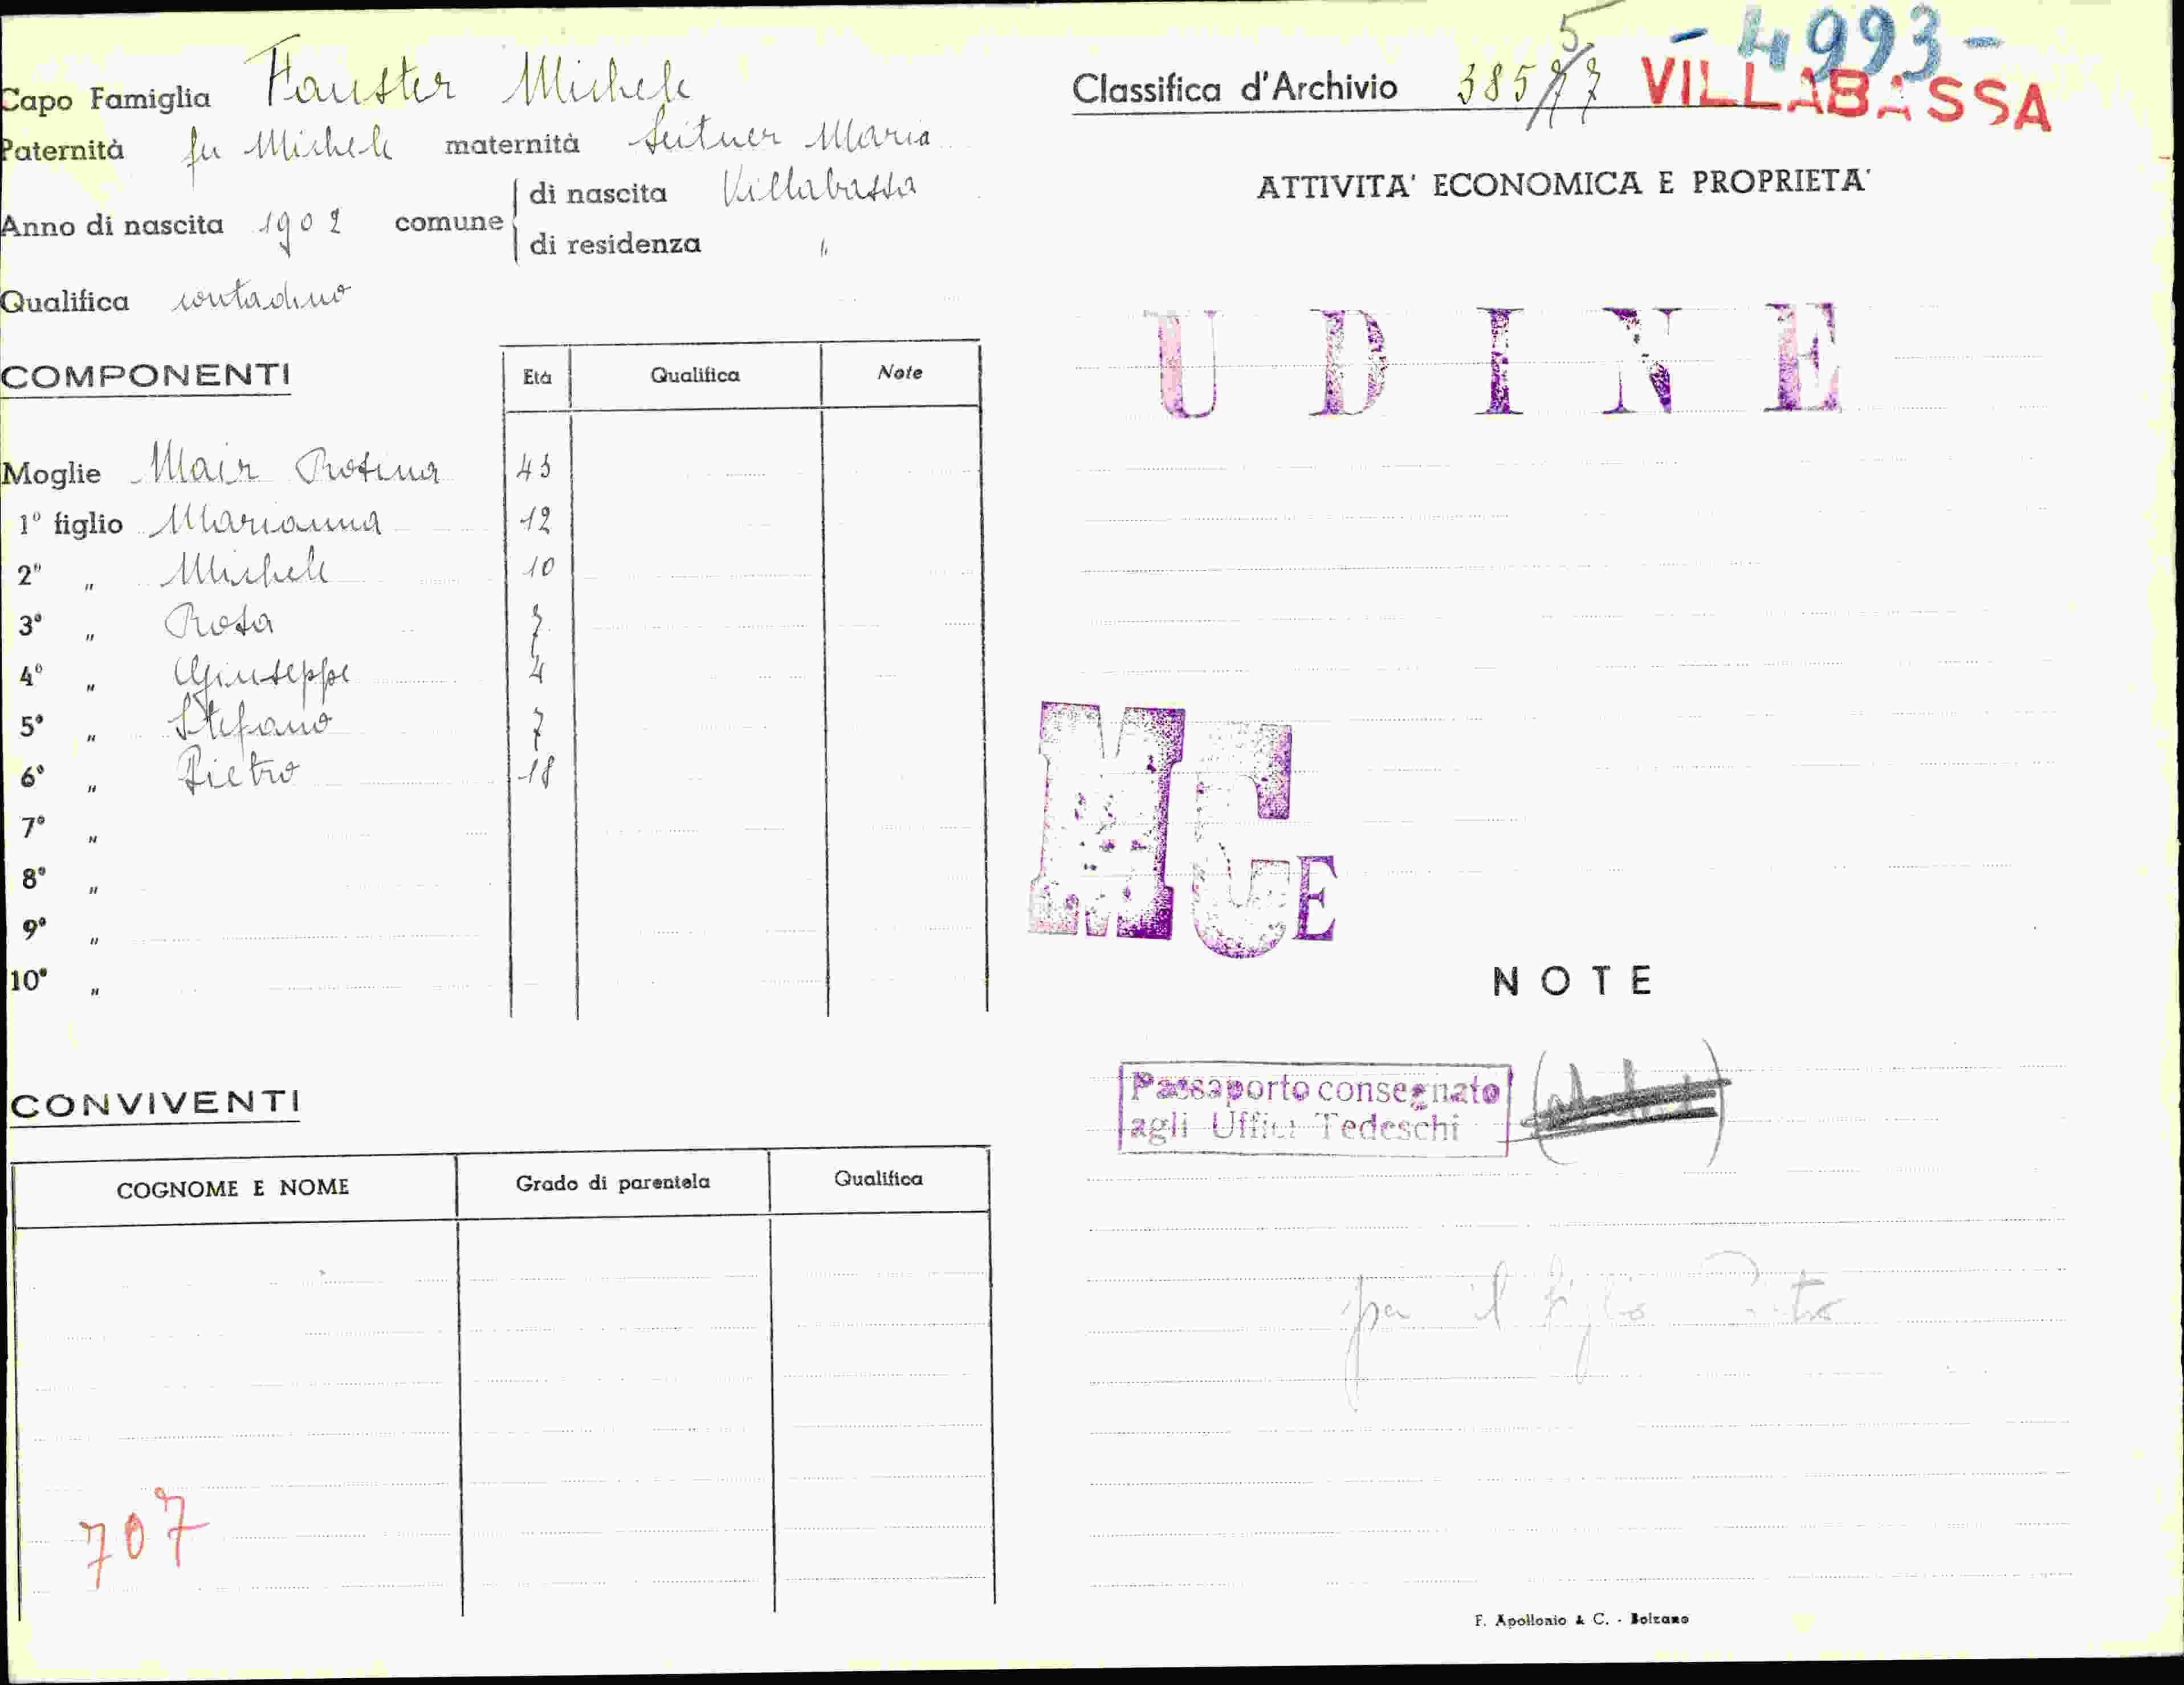 Capo Famiglia Fauster Michele
Paternità fu Michele maternità Leitner Maria
Anno di nascita 1902 comune di nascita Villabassa
di residenza "
Qualifica contadino
COMPONENTI Età Qualifica Note
Moglie Mair Rosina 43
1° figlio Marianna 12
2° " Michele 10
3° " Rosa 7
4° " Giuseppe 4
5° " Stefano 7
6° " Pietro 18
7° "
8° "
9° "
10° "
CONVIVENTI
COGNOME E NOME Grado di parentela Qualifica
707
- 4993 -
Classifica d'Archivio VILLABASSA
ATTIVITA' ECONOMICA E PROPRIETA'
UDINE
MGE
NOTE
Passaporto consegnato
agli Uffici Tedeschi
per il figlio Pietro
F. Apollonio & C. - Bolzano